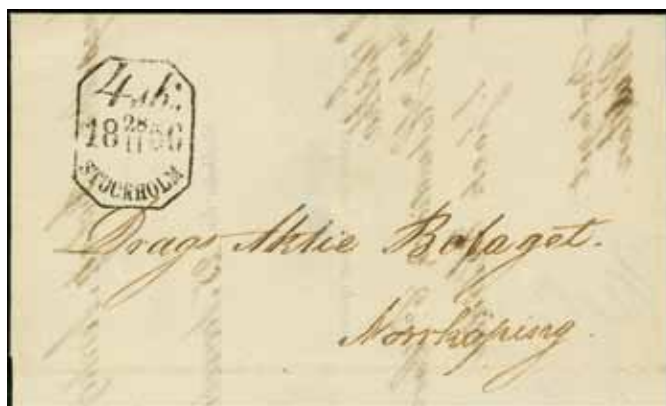 4 sk:
18 28/11 56
STOCKHOLM
Drags Aktie Bolaget.
Norrköping.